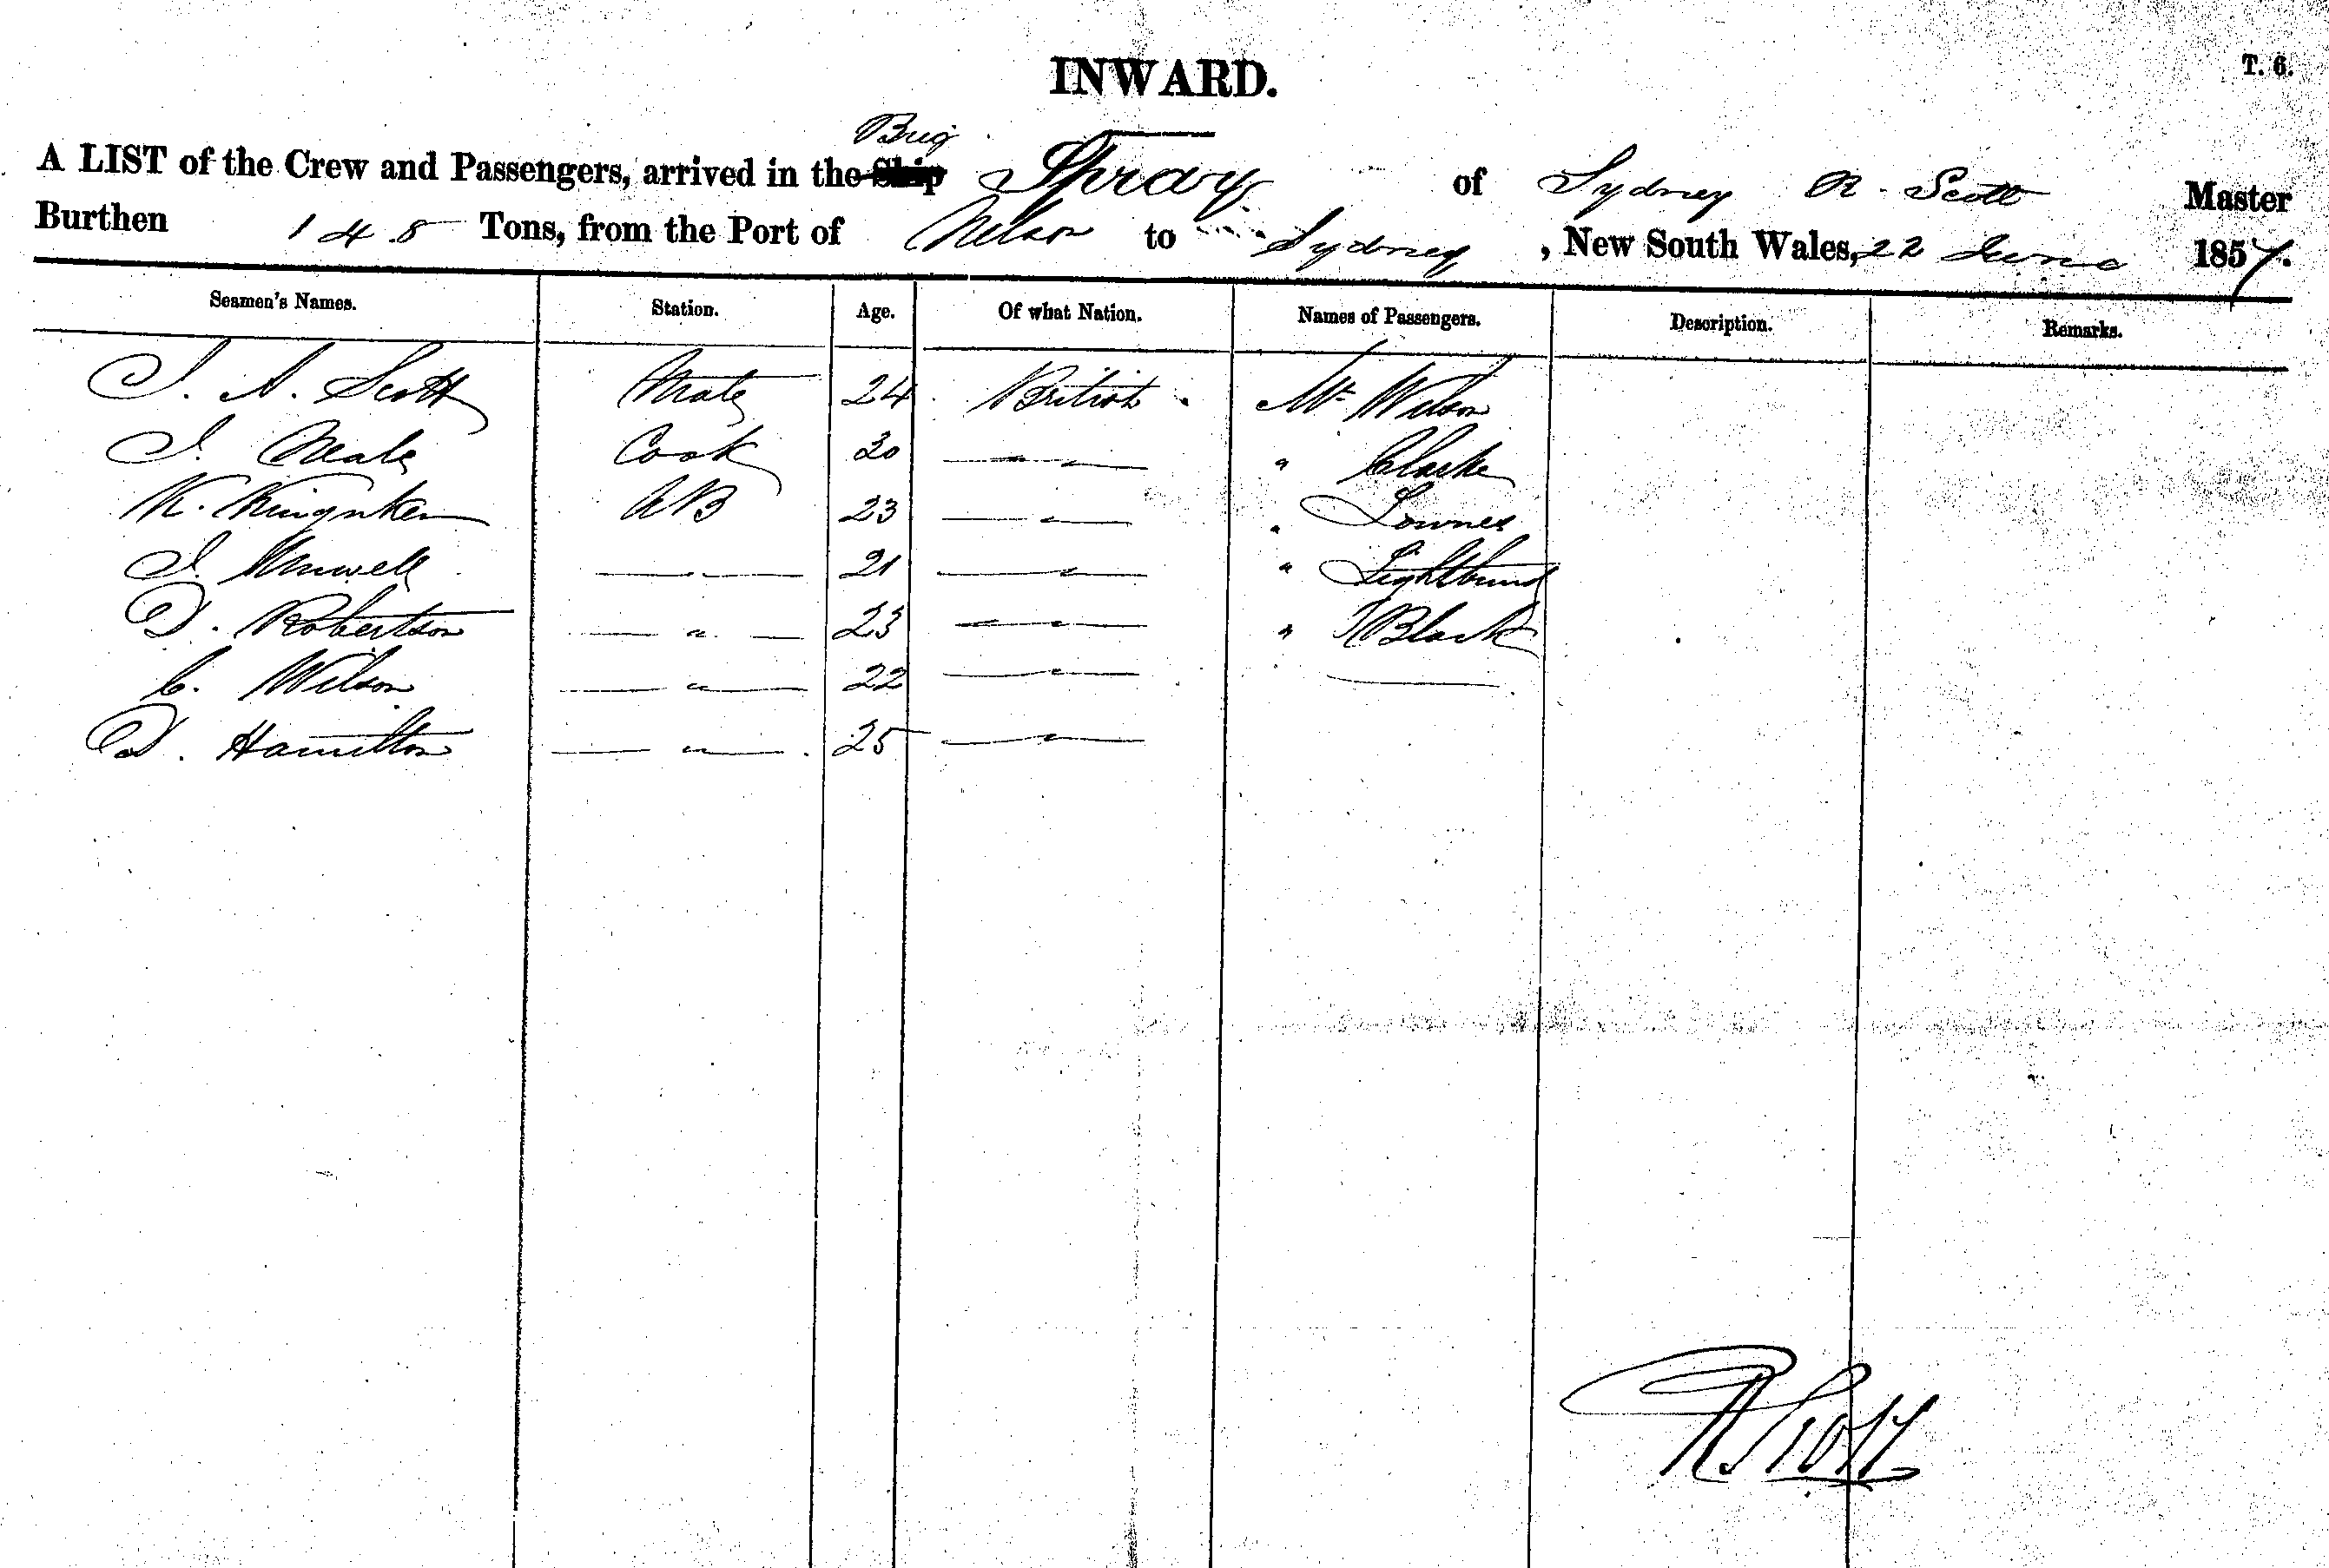 INWARD.
T. 6.
Brig
A LIST of the Crew and Passengers, arrived in the Ship Spray of Sydney R. Scott Master
Burthen 148 Tons, from the Port of Nelson to Sydney, New South Wales, 22 June 1857.
Seamen's Names. Station. Age. Of what Nation. Names of Passengers. Description. Remarks.
J. A. Scott Mate 24 British Mr Wilson
J. Neale Cook 30 — " — " Clarke
K. AB 23 — " — " Lownes
J. — " — 21 — " — " Lightbund
D. Robertson — " — 23 — " — " Black
C. Wilson — " — 22 — " —
D. Hamilton — " — 25 — " —
R Scott